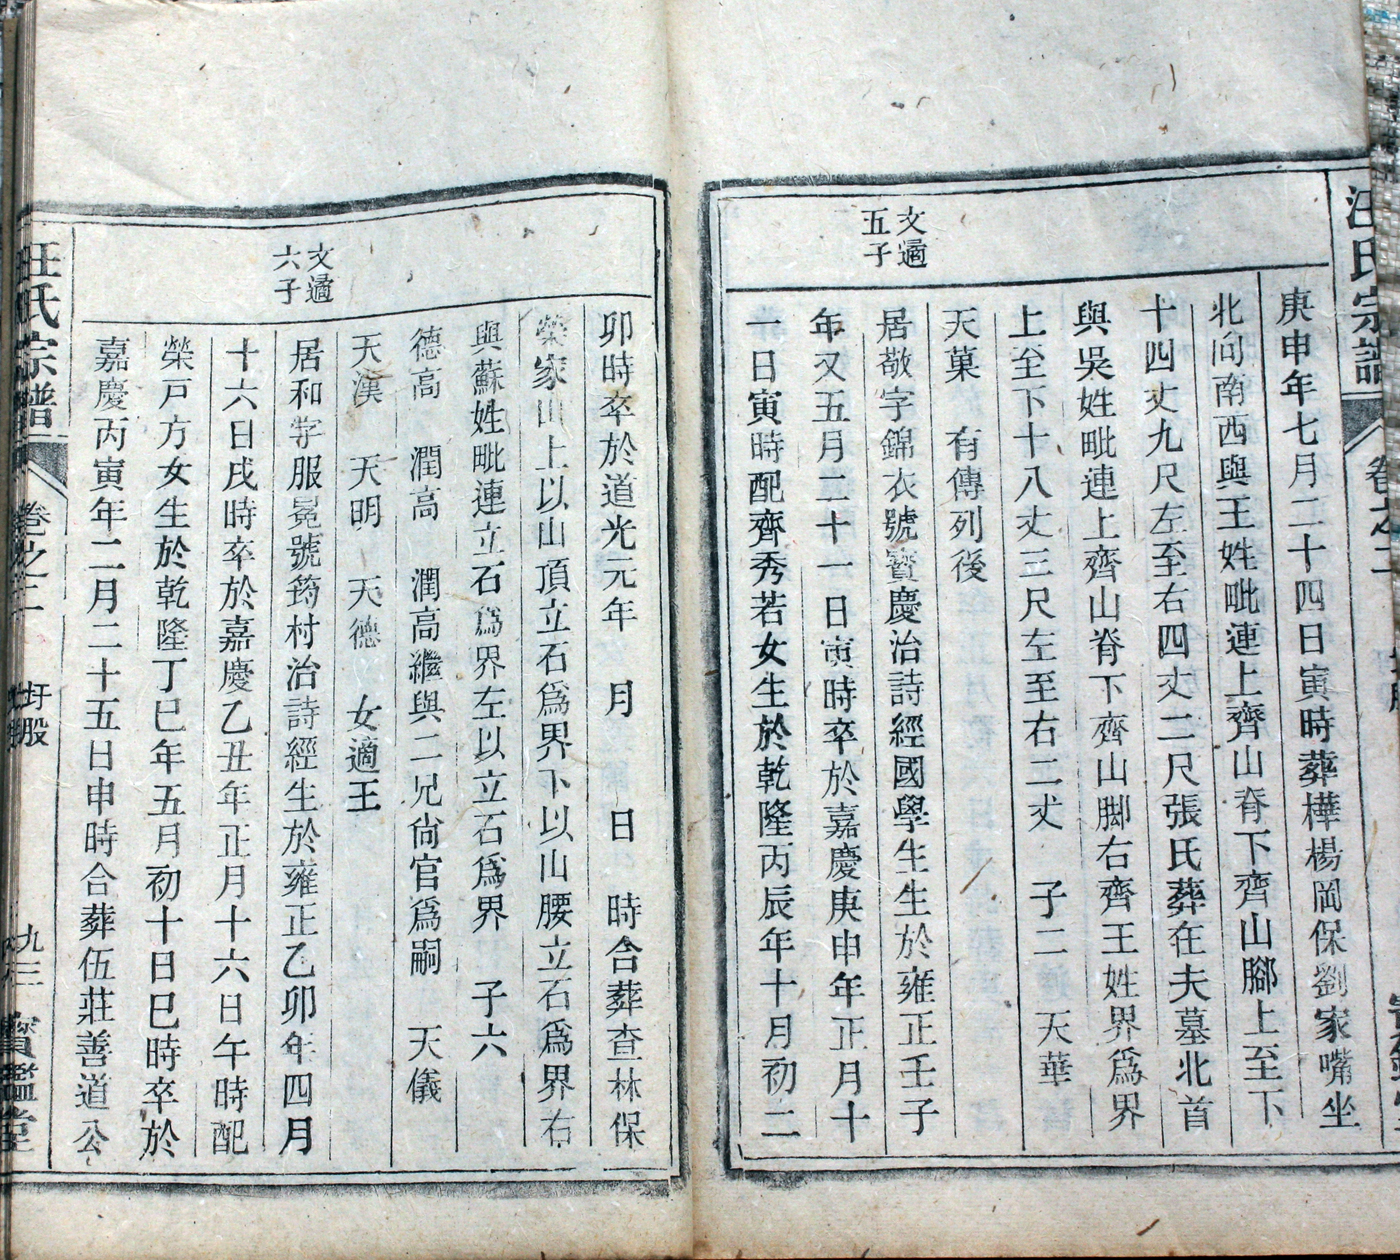 汪氏宗譜
卷之二
庚申年七月二十四日寅時葬樺楊岡保劉家嘴坐
北向南西與王姓毗連上齊山脊下齊山腳上至下
十四丈九尺左至右四丈二尺張氏葬在夫墓北首
與吳姓毗連上齊山脊下齊山脚右齊王姓界爲界
上至下十八丈三尺左至右二丈 子二 天華
天菓 有傳列後
文適
五子
居敬字錦衣號寶慶治詩經國學生生於雍正壬子
年又五月二十一日寅時卒於嘉慶庚申年正月十
一日寅時配齊秀若女生於乾隆丙辰年十月初二
卯時卒於道光元年 月 日 時合葬查林保
榮家山上以山頂立石爲界下以山腰立石爲界右
與蘇姓毗連立石爲界左以立石爲界 子六
德高 潤高 潤高繼與二兄尙官爲嗣 天儀
天漢 天明 天德 女適王
文適
六子
居和字服冕號筠村治詩經生於雍正乙卯年四月
十六日戌時卒於嘉慶乙丑年正月十六日午時配
榮戸方女生於乾隆丁巳年五月初十日巳時卒於
嘉慶丙寅年二月二十五日申時合葬伍莊善道公
汪氏宗譜
卷之二
圩股
九三
寶鑑堂